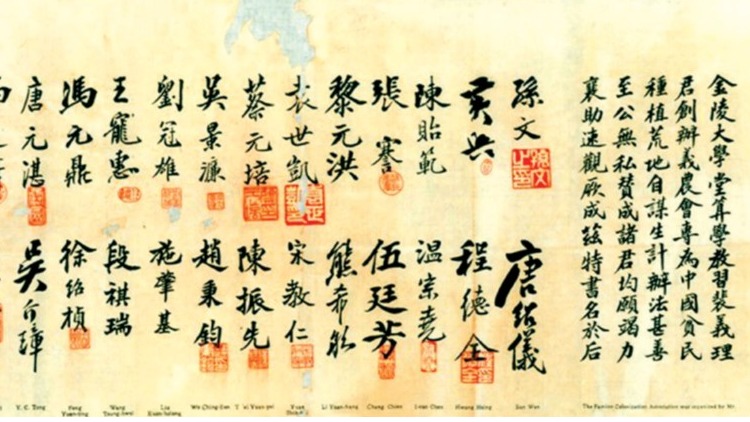 金陵大學堂筭學教習裴義理
君創辦義農會專為中國貧民
種植荒地自謀生計辦法甚善
至公無私贊成諸君均願竭力
襄助速觀厥成茲特書名於后
孫文 唐紹儀
黃興 程德全
陳貽範 温宗堯
張謇 伍廷芳
黎元洪 熊希齡
袁世凱 宋教仁
蔡元培 陳振先
吳景濂 趙秉鈞
劉冠雄 施肇基
王寵惠 段祺瑞
馮元鼎 徐紹楨
唐元湛 吳介璋
Y. C. Tong
Feng Yuan-ting
Wang
Liu
Li Yuan-hung
Chang Chien
Hwang Hsing
Sun Wen
The Famine Colonization Association was organized